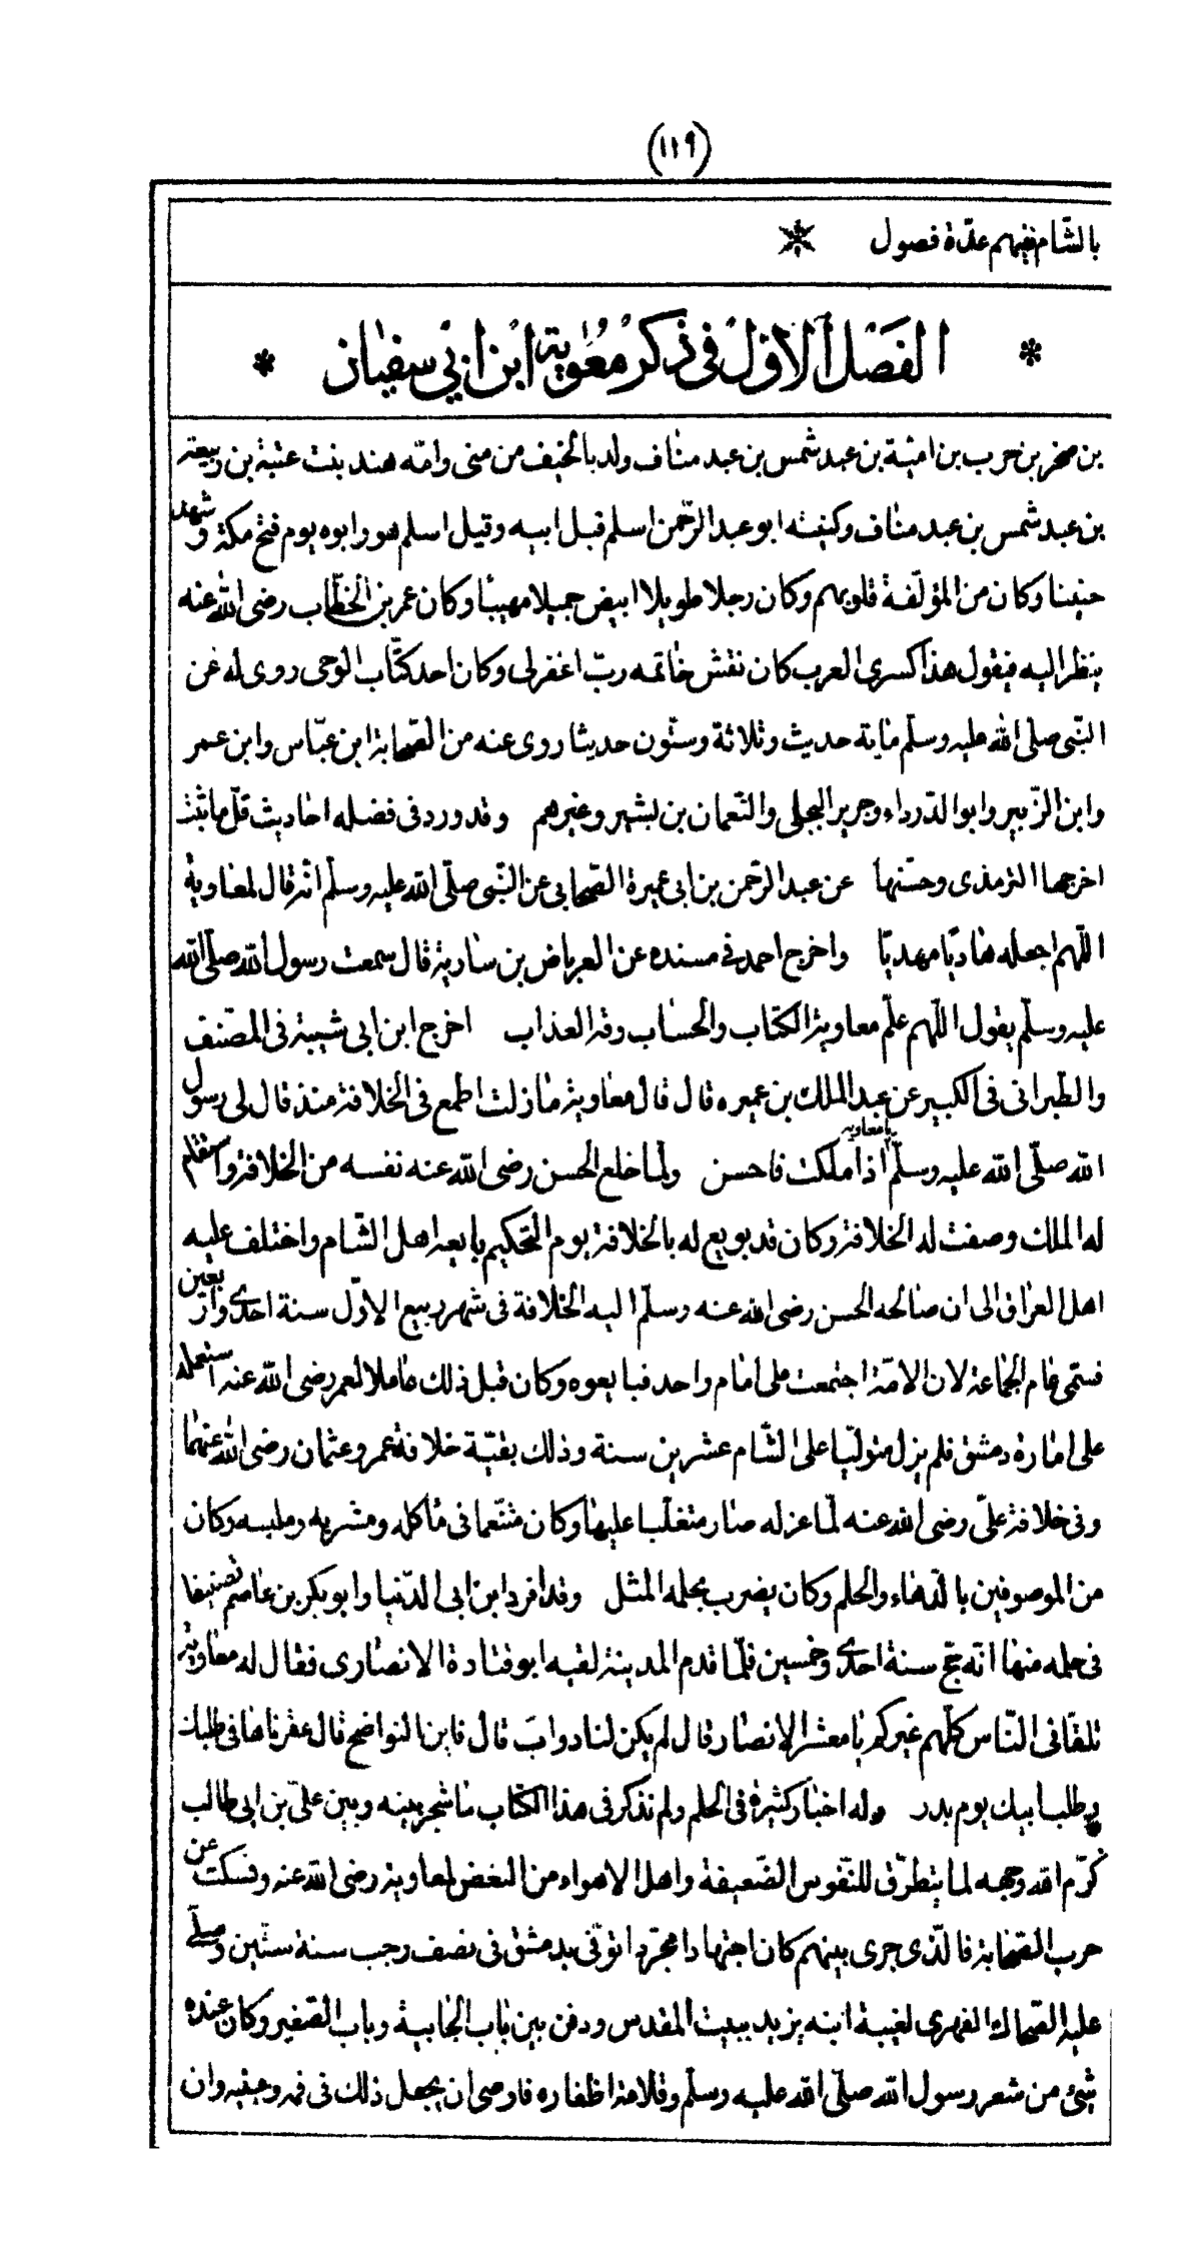 (١١٩)
بالشّام ففيهم عدّة فصول *
* الفَصْل الاوّل في ذكر مُعٰوية ابن ابي سفيان *
بن صخر بن حرب بن اميّة بن عبد شمس بن عبد مناف ولد بالخيف من منى وامّه هند بنت عتبة بن ربيعة
بن عبد شمس بن عبد مناف وكنيته ابو عبد الرّحمن اسلم قبل ابيه وقيل اسلم هو وابوه يوم فتح مكّة وشهد
حنينا وكان من المؤلّفة قلوبهم وكان رجلا طويلا ابيض جميلا مهيبا وكان عمر بن الخطّاب رضى الله عنه
ينظر اليه فيقول هذا كسرى العرب كان نقش خاتمه ربّ اغفر لى وكان احد كتّاب الوحى روى له عن
النّبى صلى الله عليه وسلّم ماية حديث وثلاثة وستّون حديثا روى عنه من الصّحابة ابن عبّاس وابن عمر
وابن الزّبير وابو الدّرداء وجرير البجلى والنّعمان بن بشير وغيرهم وقد ورد فى فضله احاديث قلّ ما تثبت
اخرجها الترمذى وحسّنها عن عبد الرّحمن بن ابى عميرة الصّحابى عن النّبى صلّى الله عليه وسلّم انّه قال لمعاوية
اللّهم اجعله هاديّا مهديّا واخرج احمد فى مسنده عن العرباض بن سارية قال سمعت رسول الله صلّى الله
عليه وسلّم يقول اللّهم علّم معاوية الكتاب والحساب وقه العذاب اخرج ابن ابى شيبة فى المصنّف
والطّبرانى فى الكبير عن عبد الملك بن عميره قال قال معاوية ما زلت اطمع فى الخلافة منذ قال لى رسول
الله صلّى الله عليه وسلّم يا معاوية اذا ملكت فاحسن ولمّا خلع الحسن رضى الله عنه نفسه من الخلافة واستقام
له الملك وصفت له الخلافة وكان قد بويع له بالخلافة يوم التحكيم بايعه اهل الشّام واختلف عليه
اهل العراق الى ان صالحه الحسن رضى الله عنه وسلّم اليه الخلافة فى شهر ربيع الاوّل سنة احدى واربعين
فسمّى عام الجماعة لان الامّة اجتمعت على امام واحد فبايعوه وكان قبل ذلك عاملا لعمر رضى الله عنه استعمله
على امارة دمشق فلم يزل متولّيا على الشّام عشرين سنة وذلك بقيّة خلافة عمر وعثمان رضى الله عنهما
وفى خلافة علىّ رضى الله عنه لمّا عزله صار متغلّبا عليها وكان متنعّما فى مأكله ومشربه وملبسه وكان
من الموصوفين بالدّهاء والحلم وكان يضرب بحلمه المثل وقد افرد ابن ابى الدّنيا وابو بكر بن عاصم تصنيفا
فى حلمه منها انّه حجّ سنة احدى وخمسين فلمّا قدم المدينة لقيه ابو قتادة الانصارى فقال له معاوية
تلقّانى النّاس كلّهم غيركم يا معشر الانصار قال لم يكن لنا دوابّ قال فاين النواضح قال عقرناها فى طلبك
وطلب ابيك يوم بدر وله اخبار كثيرة فى الحلم ولم نذكر فى هذا الكتاب ما شجر بينه وبين علىّ بن ابى طالب
كرّم الله وجهه لما يتطرّق للنّفوس الضّعيفة واهل الاهواء من البغض لمعاوية رضى الله عنه ونسكت عن
حرب الصّحابة فالّذى جرى بينهم كان اجتهادا مجرّدا توفّى بدمشق فى نصف رجب سنة ستّين وصلّى
عليه الضّحاك الفهرى لغيبة ابنه يزيد ببيت المقدس ودفن بين باب الجابية وباب الصّغير وكان عنده
شئ من شعر رسول الله صلّى الله عليه وسلّم وقلامة اظفاره فاوصى ان يجعل ذلك فى فمه وعينيه وان